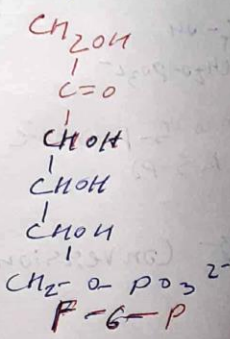 CH2OH
C=O
CHOH
CHOH
CHOH
CH2-O-PO3 2-
F-6-P